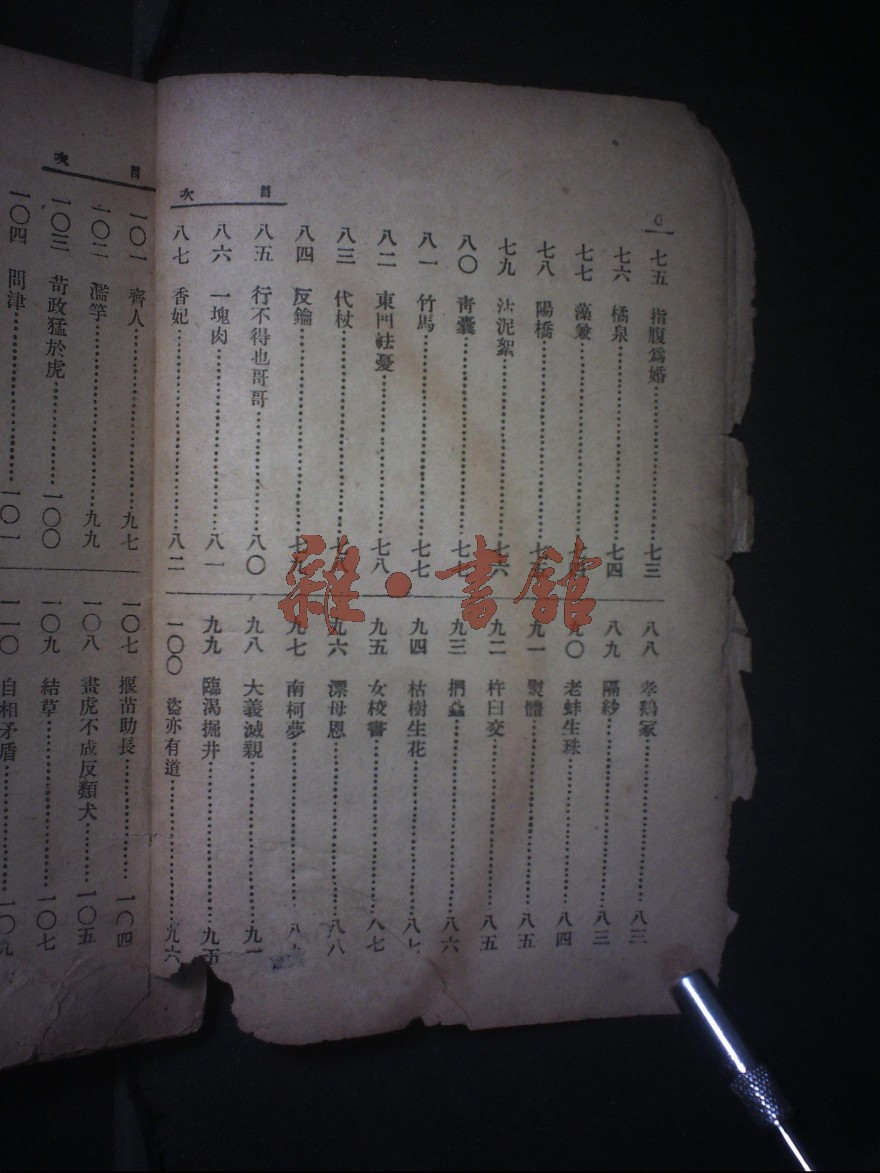 目次
七五 指腹爲婚 七三
七六 橘泉 七四
七七 藻兼
七八 陽橋
七九 沾泥絮 七六
八〇 青囊 七七
八一 竹馬 七七
八二 東門 憂 七八
八三 代杖 七八
八四 反鑰 七九
八五 行不得也哥哥 八〇
八六 一塊肉 八一
八七 香妃 八二
八八 孝鵝冢 八三
八九 隔紗 八三
九〇 老蚌生珠 八四
九一 熨體 八五
九二 杵臼交 八五
九三 捫蝨 八六
九四 枯樹生花 八七
九五 女校書 八七
九六 漂母恩 八八
九七 南柯夢
九八 大義滅親 九一
九九 臨渴掘井 九五
一〇〇 盜亦有道 九六
目次
一〇一 齊人 九七
一〇二 濫竽 九九
一〇三 苛政猛於虎 一〇〇
一〇四 問津 一〇一
一〇七 揠苗助長 一〇四
一〇八 畫虎不成反類犬 一〇五
一〇九 結草 一〇七
一一〇 自相矛盾 一〇九
雜·書館